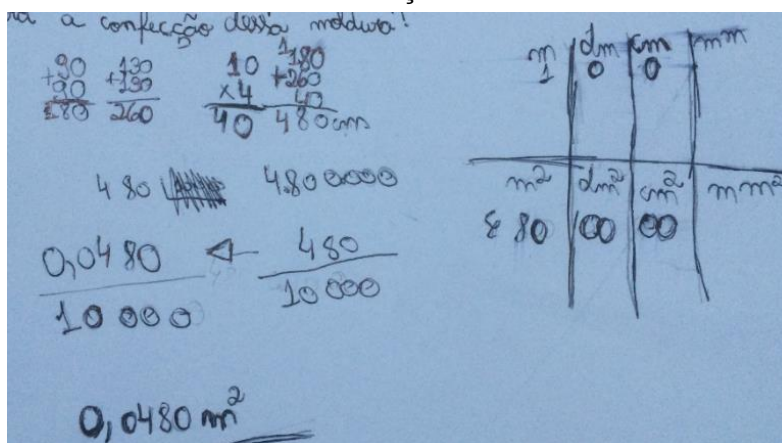 a confecção dessa moldura?
90 130 10 180
+90 +130 x4 +260
180 260 40 40
480cm
480 4.800000
0,0480 ← 480
10 000 10 000
0,0480 m²
m dm cm mm
1 0 0
m² dm² cm² mm²
80 00 00